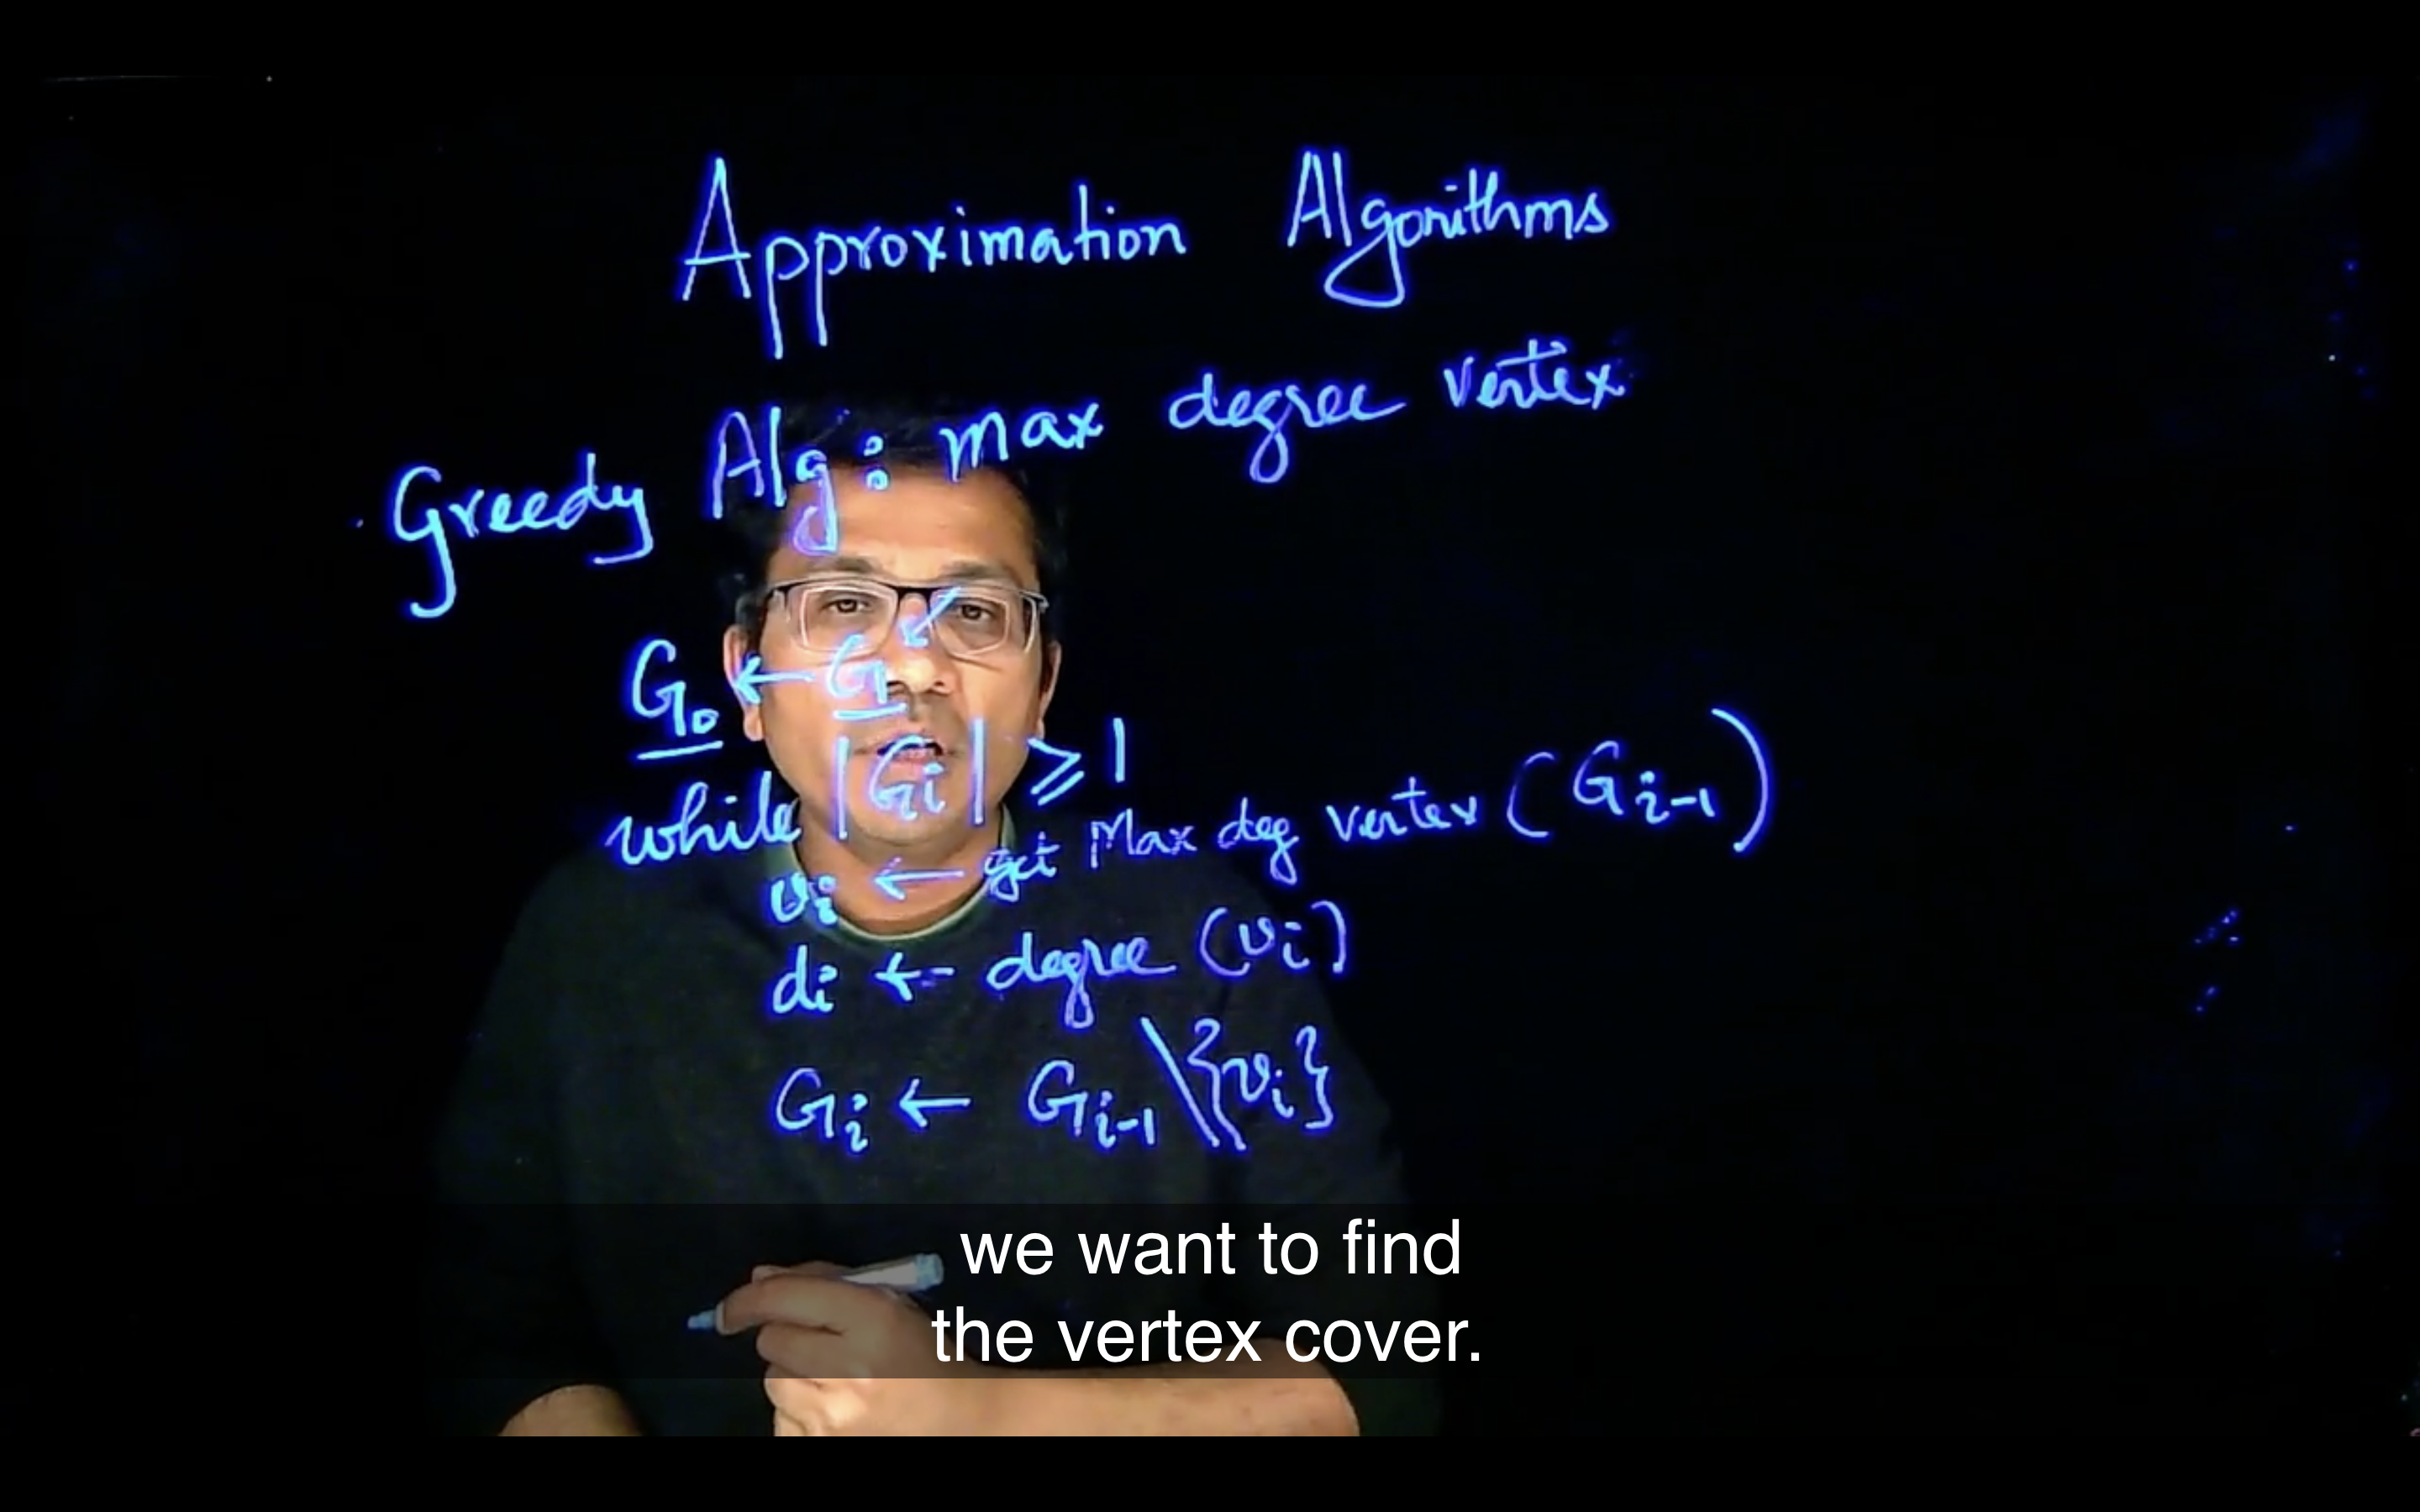 Approximation Algorithms
Greedy Alg: max degree vertex
G₀ ← G
while |Gi| ≥ 1
vi ← get Max deg vertex (Gi-1)
di ← degree (vi)
Gi ← Gi-1 \ {vi}
we want to find
the vertex cover.